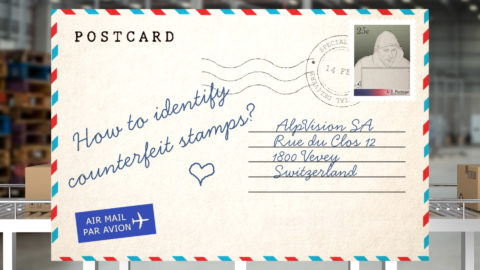 POSTCARD
25c
U.S. Postage
SPECIAL DELIVERY
14 FE
How to identify
counterfeit stamps?
AlpVision SA
Rue du Clos 12
1800 Vevey
Switzerland
AIR MAIL
PAR AVION